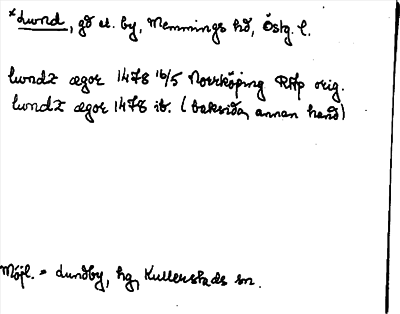 *Lund, gd el. by, Memmings hd, Östg. l.
lundz ægor 1478 16/5 Norrköping RAp orig.
lundz ægor 1478 ib. (baksida, annan hand)
Möjl. = Lundby, hg, Kullerstads sn.